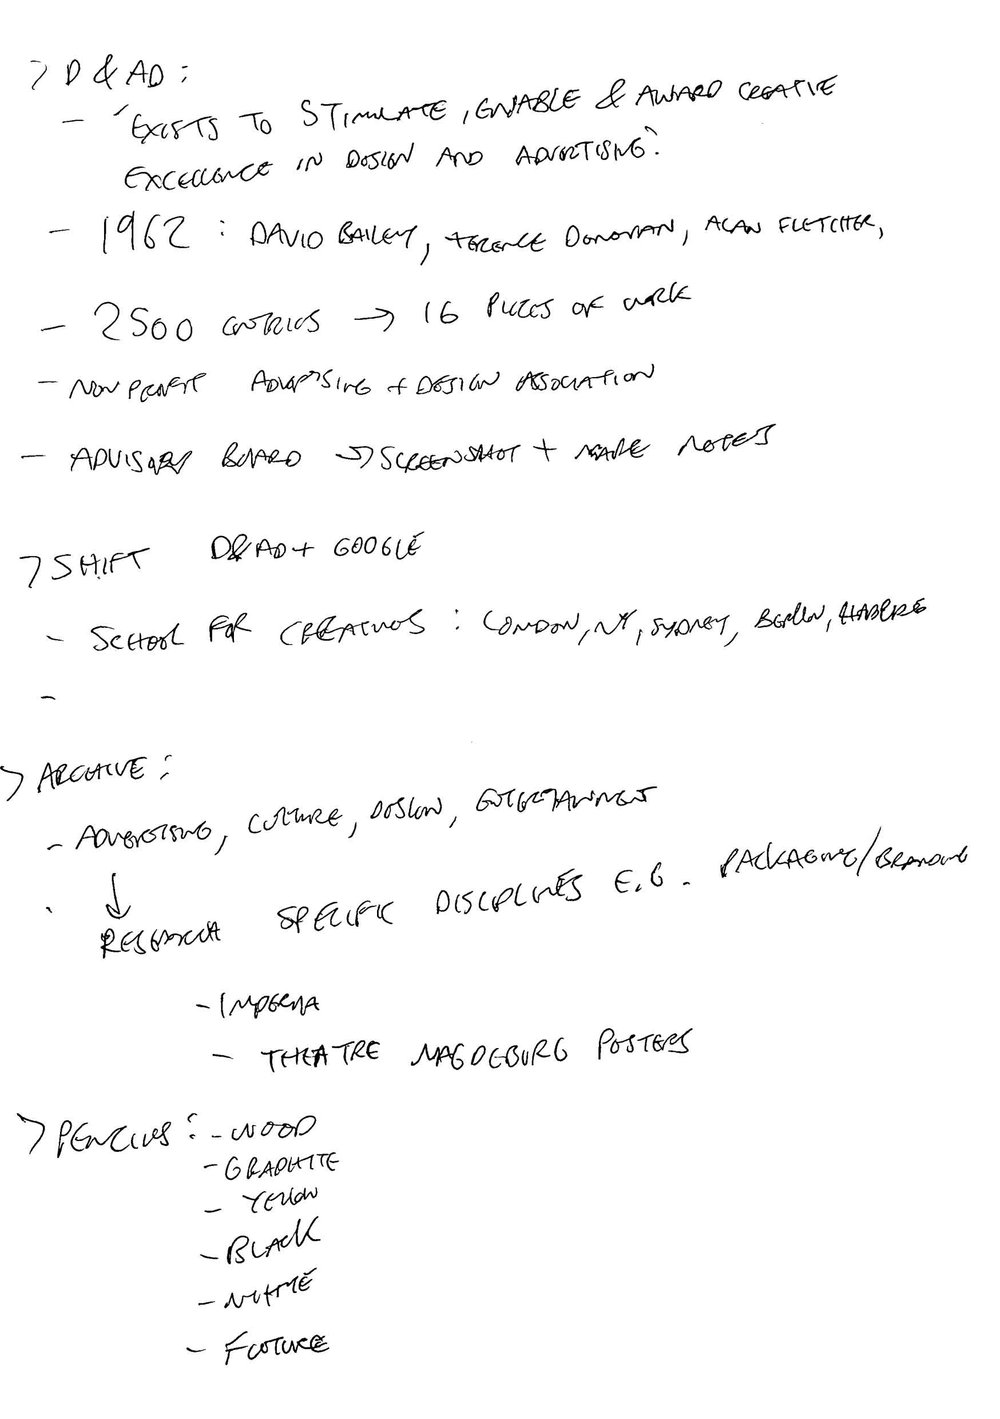 > D & AD :
- 'EXISTS TO STIMULATE, ENABLE & AWARD CREATIVE
EXCELLENCE IN DESIGN AND ADVERTISING'.
- 1962 : DAVID BAILEY, TERENCE DONOVAN, ALAN FLETCHER,
- 2500 ENTRIES → 16 PIECES OF WORK
- NON PROFIT ADVERTISING + DESIGN ASSOCIATION
- ADVISORY BOARD → SCREENSHOT + MAKE NOTES
> SHIFT D&AD + GOOGLE
- SCHOOL FOR CREATIVES : LONDON, NY, SYDNEY, BERLIN,
-
> ARCHIVE :
- ADVERTISING, CULTURE, DESIGN, ENTERTAINMENT
↓
RESEARCH SPECIFIC DISCIPLINES E.G. PACKAGING/BRANDING
-
- THEATRE MAGDEBURG POSTERS
> PENCILS : - WOOD
- GRAPHITE
- YELLOW
- BLACK
- WHITE
- FUTURE